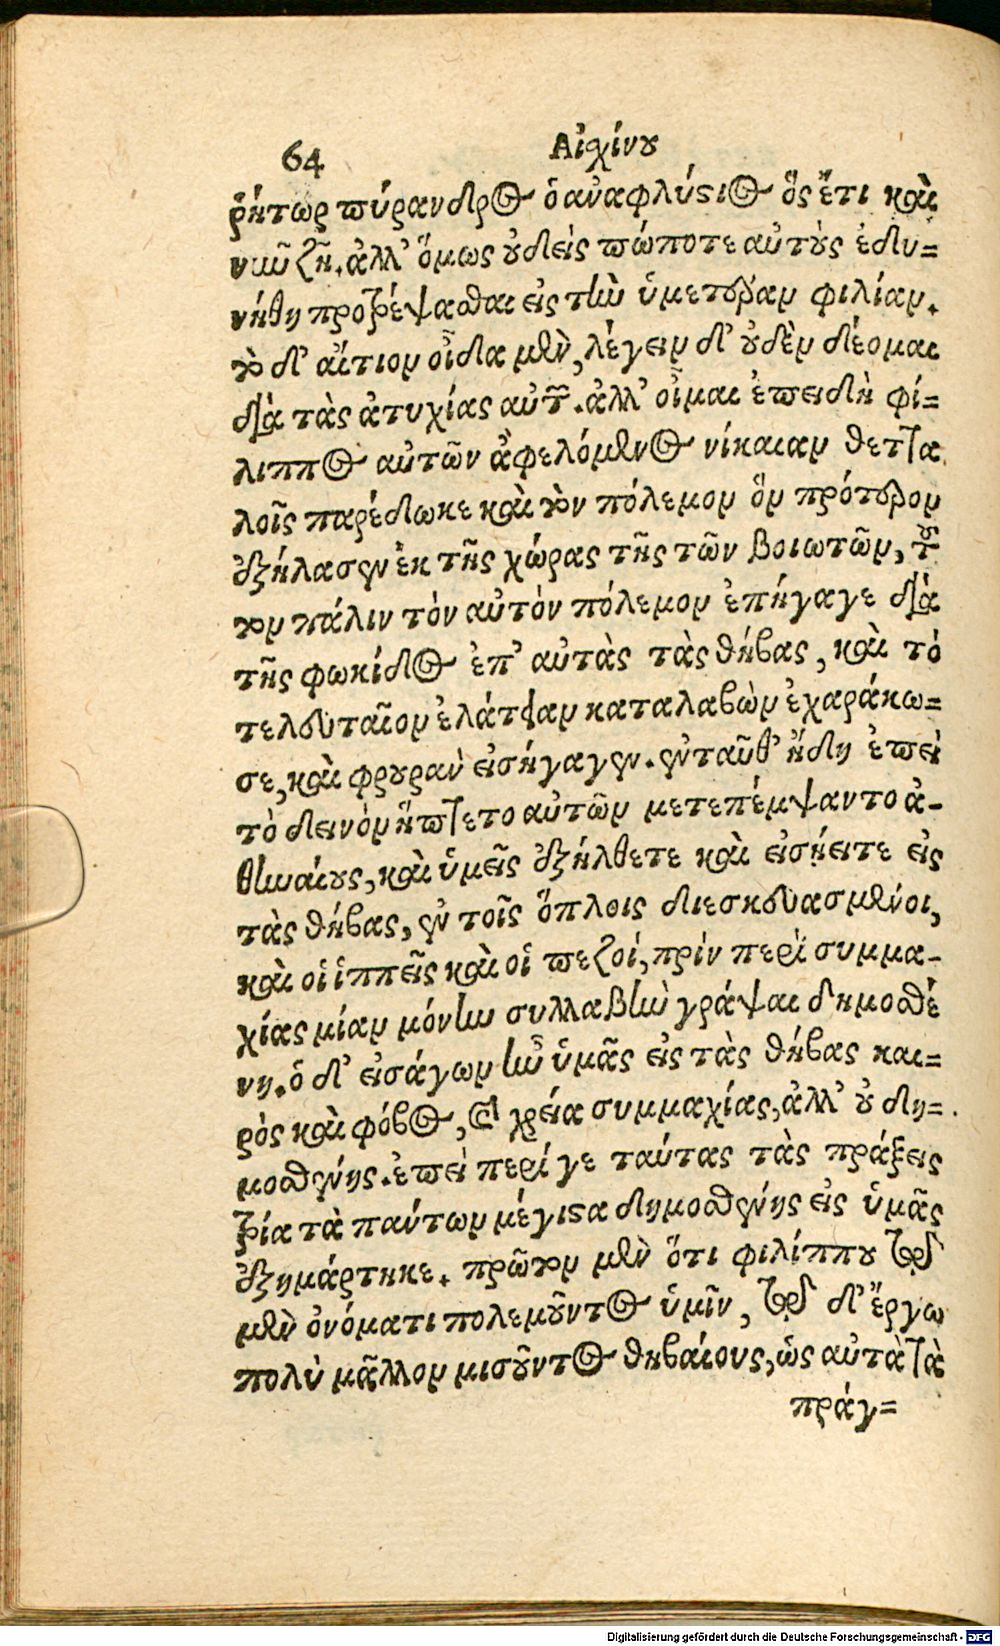 64 Αἰχίνου
ῥήτωρ πύρανδρος ὁ ἀναφλύστιος ὅς ἔτι καὶ
νῦν ζῆ. ἀλλ' ὅμως οὐδεὶς πώποτε αὐτοὺς ἐδυ=
νήθη προτρέψασθαι εἰς τὴν ὑμετέραν φιλίαν.
τὸ δ' αἴτιον οἶδα μὲν, λέγειν δ' οὐδὲν δέομαι
διὰ τὰς ἀτυχίας αὐτῶν. ἀλλ' οἶμαι ἐπειδὴ φί=
λιππος αὐτῶν ἀφελόμενος νίκαιαν θεττα
λοῖς παρέδωκε καὶ τὸν πόλεμον ὃν πρότερον
ἐξήλασεν ἐκ τῆς χώρας τῆς τῶν βοιωτῶν, τοῦ
τον πάλιν τὸν αὐτὸν πόλεμον ἐπήγαγε διὰ
τῆς φωκίδος ἐπ' αὐτὰς τὰς θήβας, καὶ τὸ
τελευταῖον ἐλάτειαν καταλαβὼν ἐχαράκω=
σε, καὶ φρουρὰν εἰσήγαγεν. ἐνταῦθ' ἤδη ἐπεὶ
τὸ δεινὸν ἥπτετο αὐτῶν μετεπέμψαντο ἀ-
θηναίους, καὶ ὑμεῖς ἐξήλθετε καὶ εἰσῄειτε εἰς
τὰς θήβας, ἐν τοῖς ὅπλοις διεσκευασμένοι,
καὶ οἱ ἱππεῖς καὶ οἱ πεζοί, πρίν περὶ συμμα-
χίας μίαν μόνην συλλαβὴν γράψαι δημοσθέ
νη. ὁ δ' εἰσάγων ἦν ὑμᾶς εἰς τὰς θήβας και=
ρὸς καὶ φόβος, καὶ χρεία συμμαχίας, ἀλλ' οὐ δη=
μοσθένης. ἐπεὶ περί γε ταύτας τὰς πράξεις
τρία τὰ πάντων μέγιστα δημοσθένης εἰς ὑμᾶς
ἐξημάρτηκε. πρῶτον μὲν ὅτι φιλίππου τῷ
μὲν ὀνόματι πολεμοῦντος ὑμῖν, τῷ δ' ἔργῳ
πολὺ μᾶλλον μισοῦντος θηβαίους, ὡς αὐτὰ τὰ
πράγ=
Digitalisierung gefördert durch die Deutsche Forschungsgemeinschaft - DFG